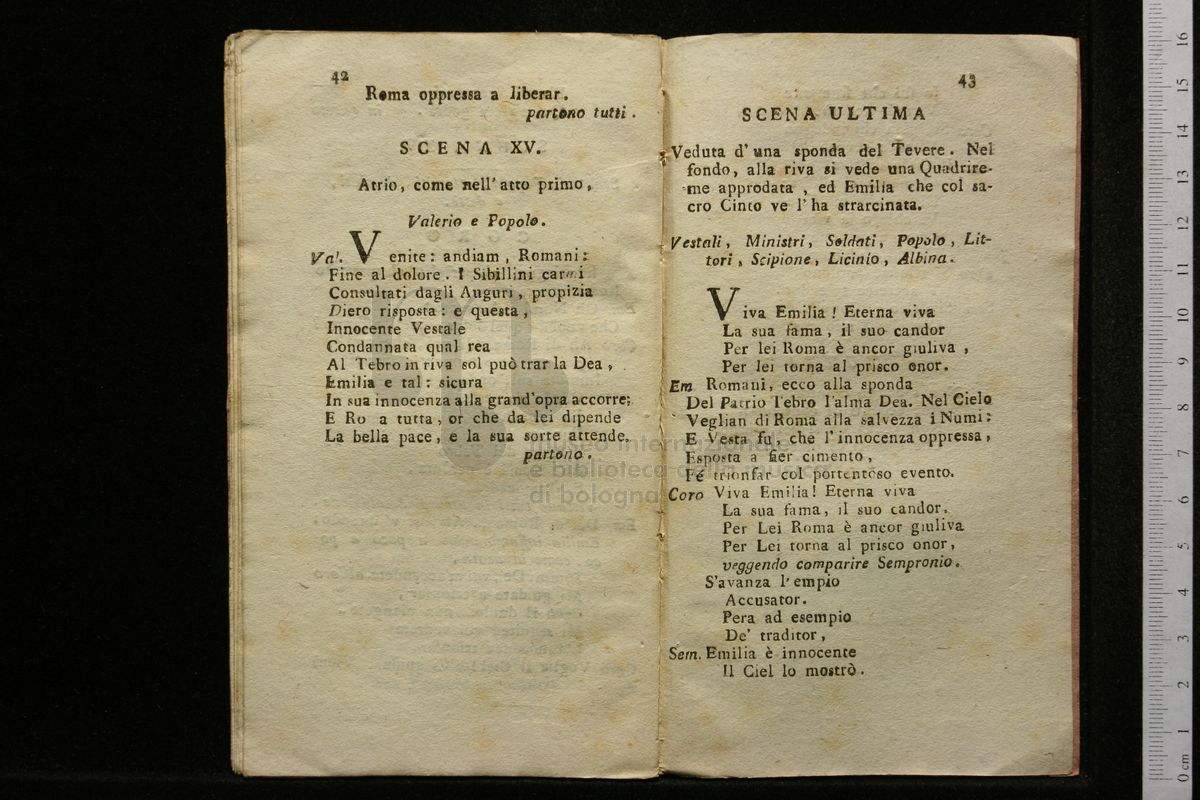 42
Roma oppressa a liberar.
partono tutti.
SCENA XV.
Atrio, come nell' atto primo,
Valerio e Popolo.
Val. Venite: andiam, Romani:
Fine al dolore. I Sibillini carmi
Consultati dagli Auguri, propizia
Diero risposta: e questa,
Innocente Vestale
Condannata qual rea
Al Tebro in riva sol può trar la Dea,
Emilia e tal: sicura
In sua innocenza alla grand'opra accorre;
E Ro a tutta, or che da lei dipende
La bella pace, e la sua sorte attende.
partono.
43
SCENA ULTIMA
Veduta d' una sponda del Tevere. Nel
fondo, alla riva si vede una Quadrire-
me approdata, ed Emilia che col sa-
cro Cinto ve l' ha strarcinata.
Vestali, Ministri, Soldati, Popolo, Lit-
tori, Scipione, Licinio, Albina.
Viva Emilia! Eterna viva
La sua fama, il suo candor
Per lei Roma è ancor giuliva,
Per lei torna al prisco onor.
Em Romani, ecco alla sponda
Del Patrio Tebro l'alma Dea. Nel Cielo
Veglian di Roma alla salvezza i Numi:
E Vesta fu, che l' innocenza oppressa,
Esposta a fier cimento,
Fé trionfar col portentoso evento.
Coro Viva Emilia! Eterna viva
La sua fama, il suo candor.
Per Lei Roma è ancor giuliva
Per Lei torna al prisco onor,
veggendo comparire Sempronio.
S'avanza l' empio
Accusator.
Pera ad esempio
De' traditor,
Sem. Emilia è innocente
Il Ciel lo mostrò.
museo internazionale
e biblioteca della musica
di bologna
0 cm 1 2 3 4 5 6 7 8 9 10 11 12 13 14 15 16